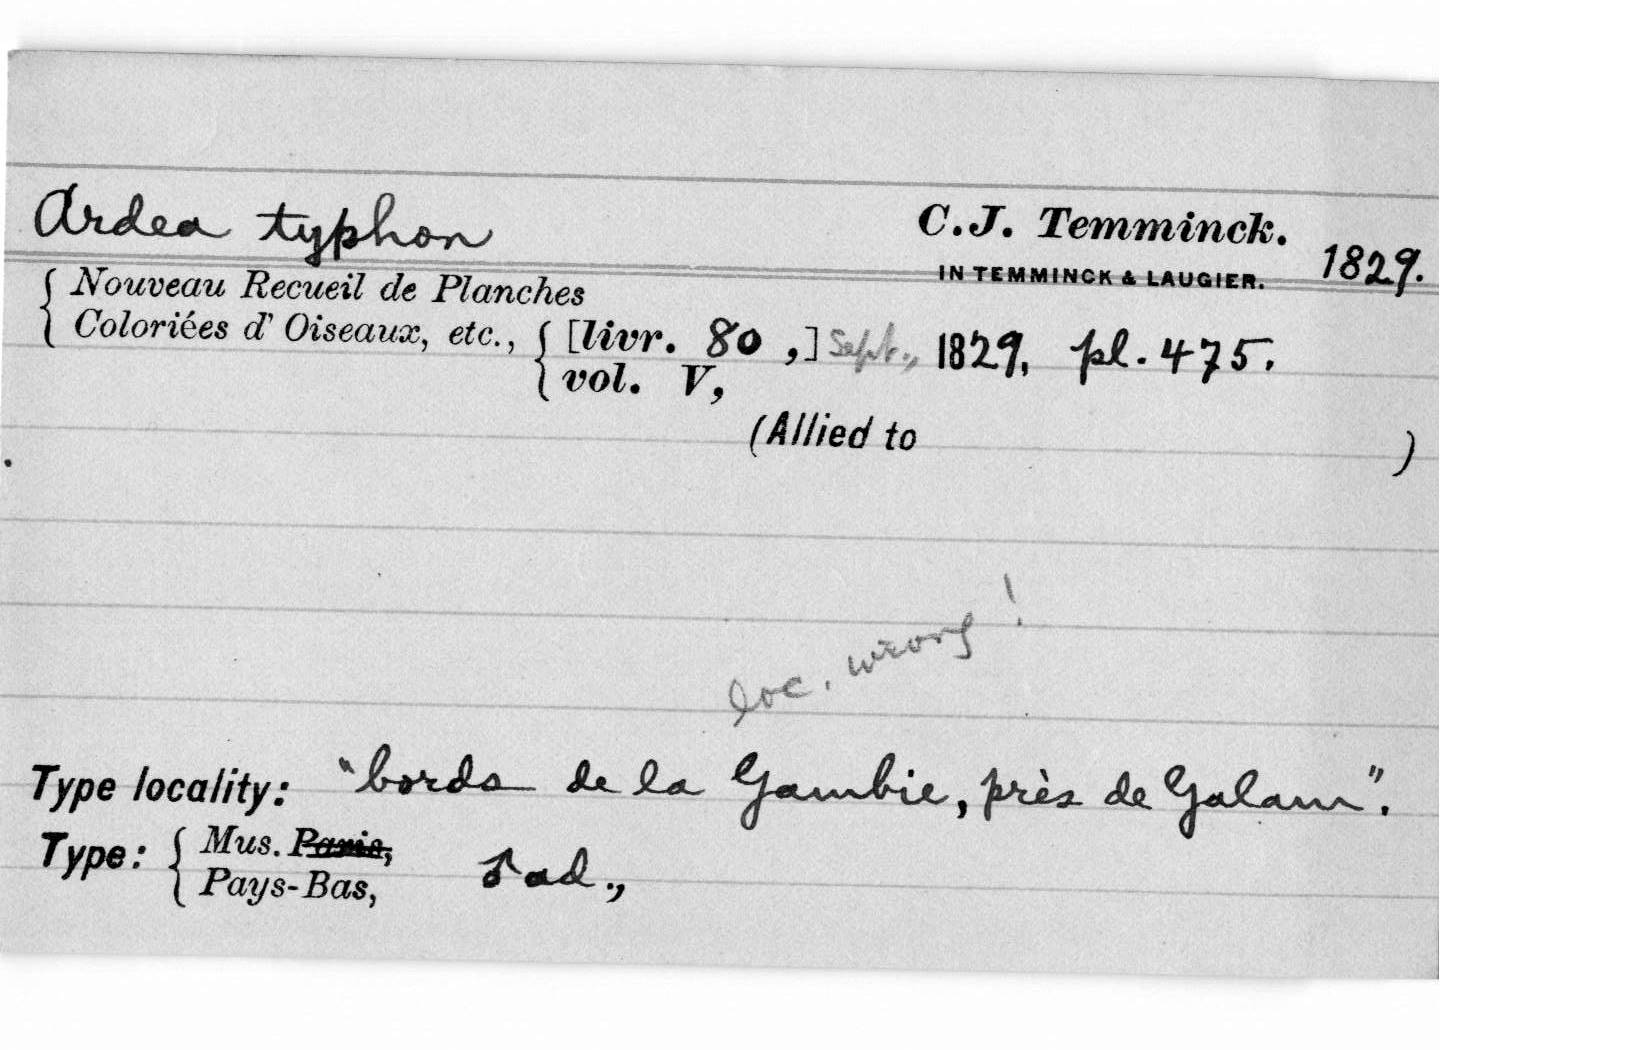 Ardea typhon C.J. Temminck.
IN TEMMINCK & LAUGIER. 1829.
{ Nouveau Recueil de Planches
Coloriées d'Oiseaux, etc., { [livr. 80 ,] Sept., 1829, pl. 475.
vol. V,
(Allied to )
loc. wrong!
Type locality: "bords de la Gambie, près de Galam".
Type: { Mus. Paris,
Pays-Bas, ♂ ad.,